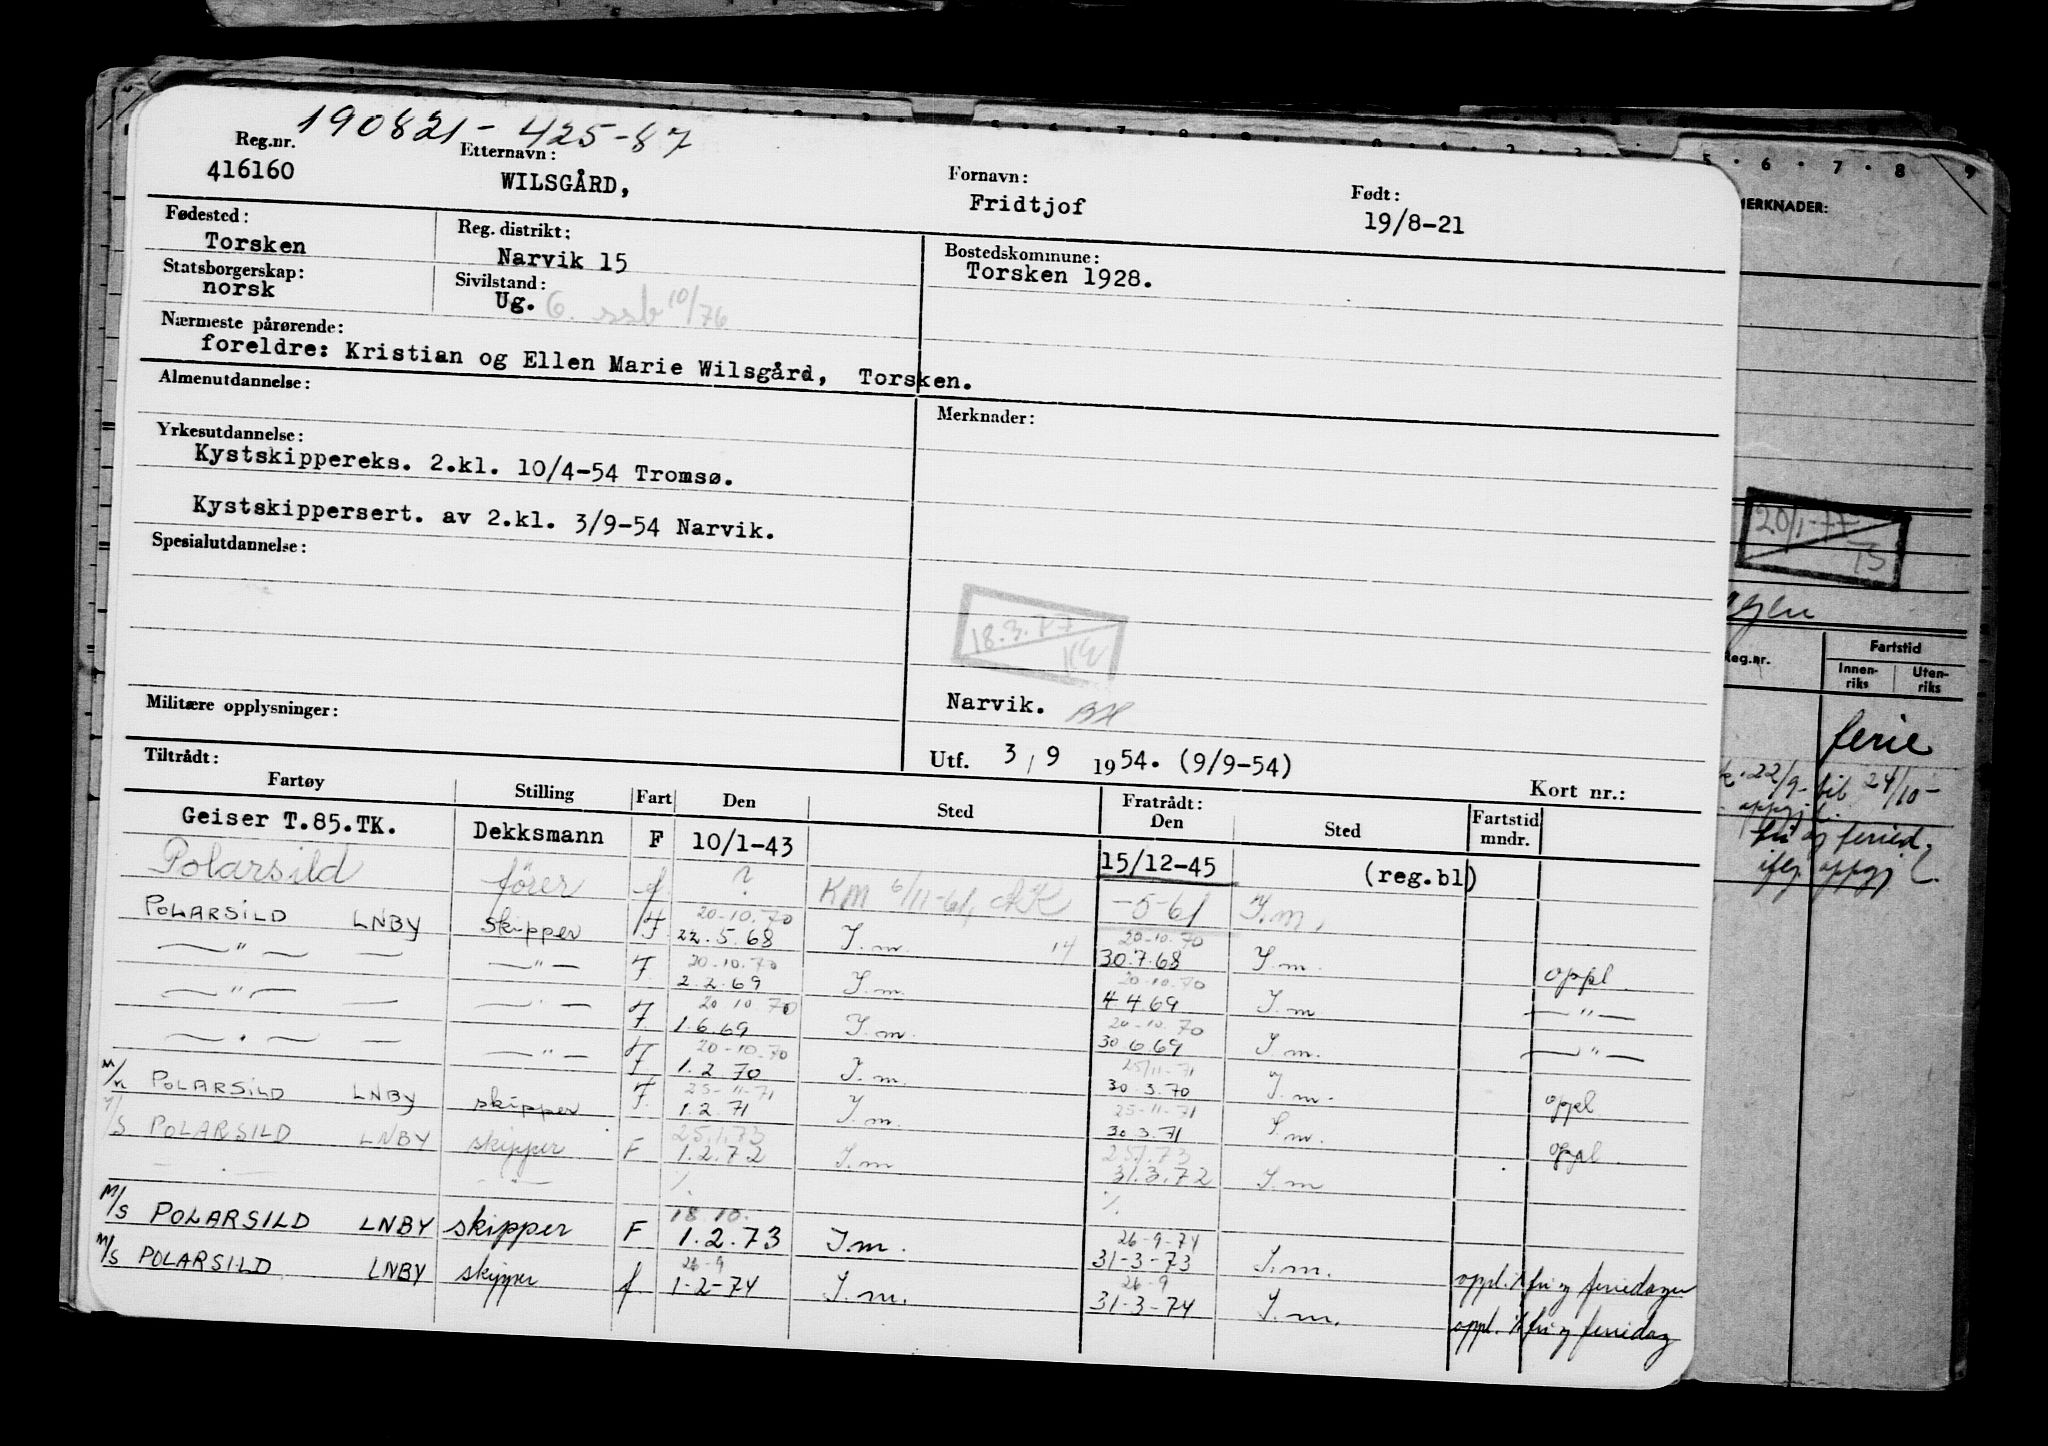 190821-425-87
Reg.nr. Etternavn: Fornavn: Født:
416160 WILSGÅRD, Fridtjof 19/8-21
Fødested: Reg. distrikt: Bostedskommune:
Torsken Narvik 15 Torsken 1928.
Statsborgerskap: Sivilstand:
norsk Ug. G. ssb 10/76
Nærmeste pårørende:
foreldre: Kristian og Ellen Marie Wilsgård, Torsken.
Almenutdannelse: Merknader:
Yrkesutdannelse:
Kystskippereks. 2.kl. 10/4-54 Tromsø.
Kystskippersert. av 2.kl. 3/9-54 Narvik.
Spesialutdannelse:
18.3.77
KW
Militære opplysninger: Narvik.
Utf. 3 / 9 1954. (9/9-54)
Tiltrådt: Fratrådt: Kort nr.:
Fartøy Stilling Fart Den Sted Den Sted Fartstid mndr.
Geiser T.85.TK. Dekksmann F 10/1-43 15/12-45 (reg.bl)
Polarsild fører f. ? KM 6/11-61, AK -5-61 I.m.
20-10.70 20-10.70
POLARSILD LNBY skipper F. 22.5.68 I.m. 14 30.7.68 I.m. oppl.
20-10.70 20-10.70
— " — — — " — F. 2.2.69 I.m. 4.4.69 I.m — " —
20 10.70 20-10.70
— " — — — " — F. 1.6.69 I.m. 30.6.69 I.m. — " —
20-10-70 25/11-71
— " — — — " — F. 1.2 70 I.m. 30.3.70 I.m. oppl
25-11-71 25-11-71
M/K POLARSILD LNBY skipper F. 1.2.71 I.m. 30.3.71 I.m. oppl.
25.1.73 25.1.73
M/S POLARSILD LNBY skipper F 1.2.72 I.m 31.3.72 I.m
— . — — . — % %
18.10. 26-9-74
M/S POLARSILD LNBY skipper F 1.2.73 I.m. 31-3-73 I.m. oppl. % fri og feriedager
26-9 26-9
M/S POLARSILD LNBY skipper f. 1-2-74 I.m. 31-3-74 I.m. oppl. % fri og feriedag
5 · 6 · 7 · 8 · 9
MERKNADER:
20/1-77
TS
Reg.nr. Fartstid
Innenriks Utenriks
ferie
22/9- til 24/10-
fri og feried.
iflg. oppgj